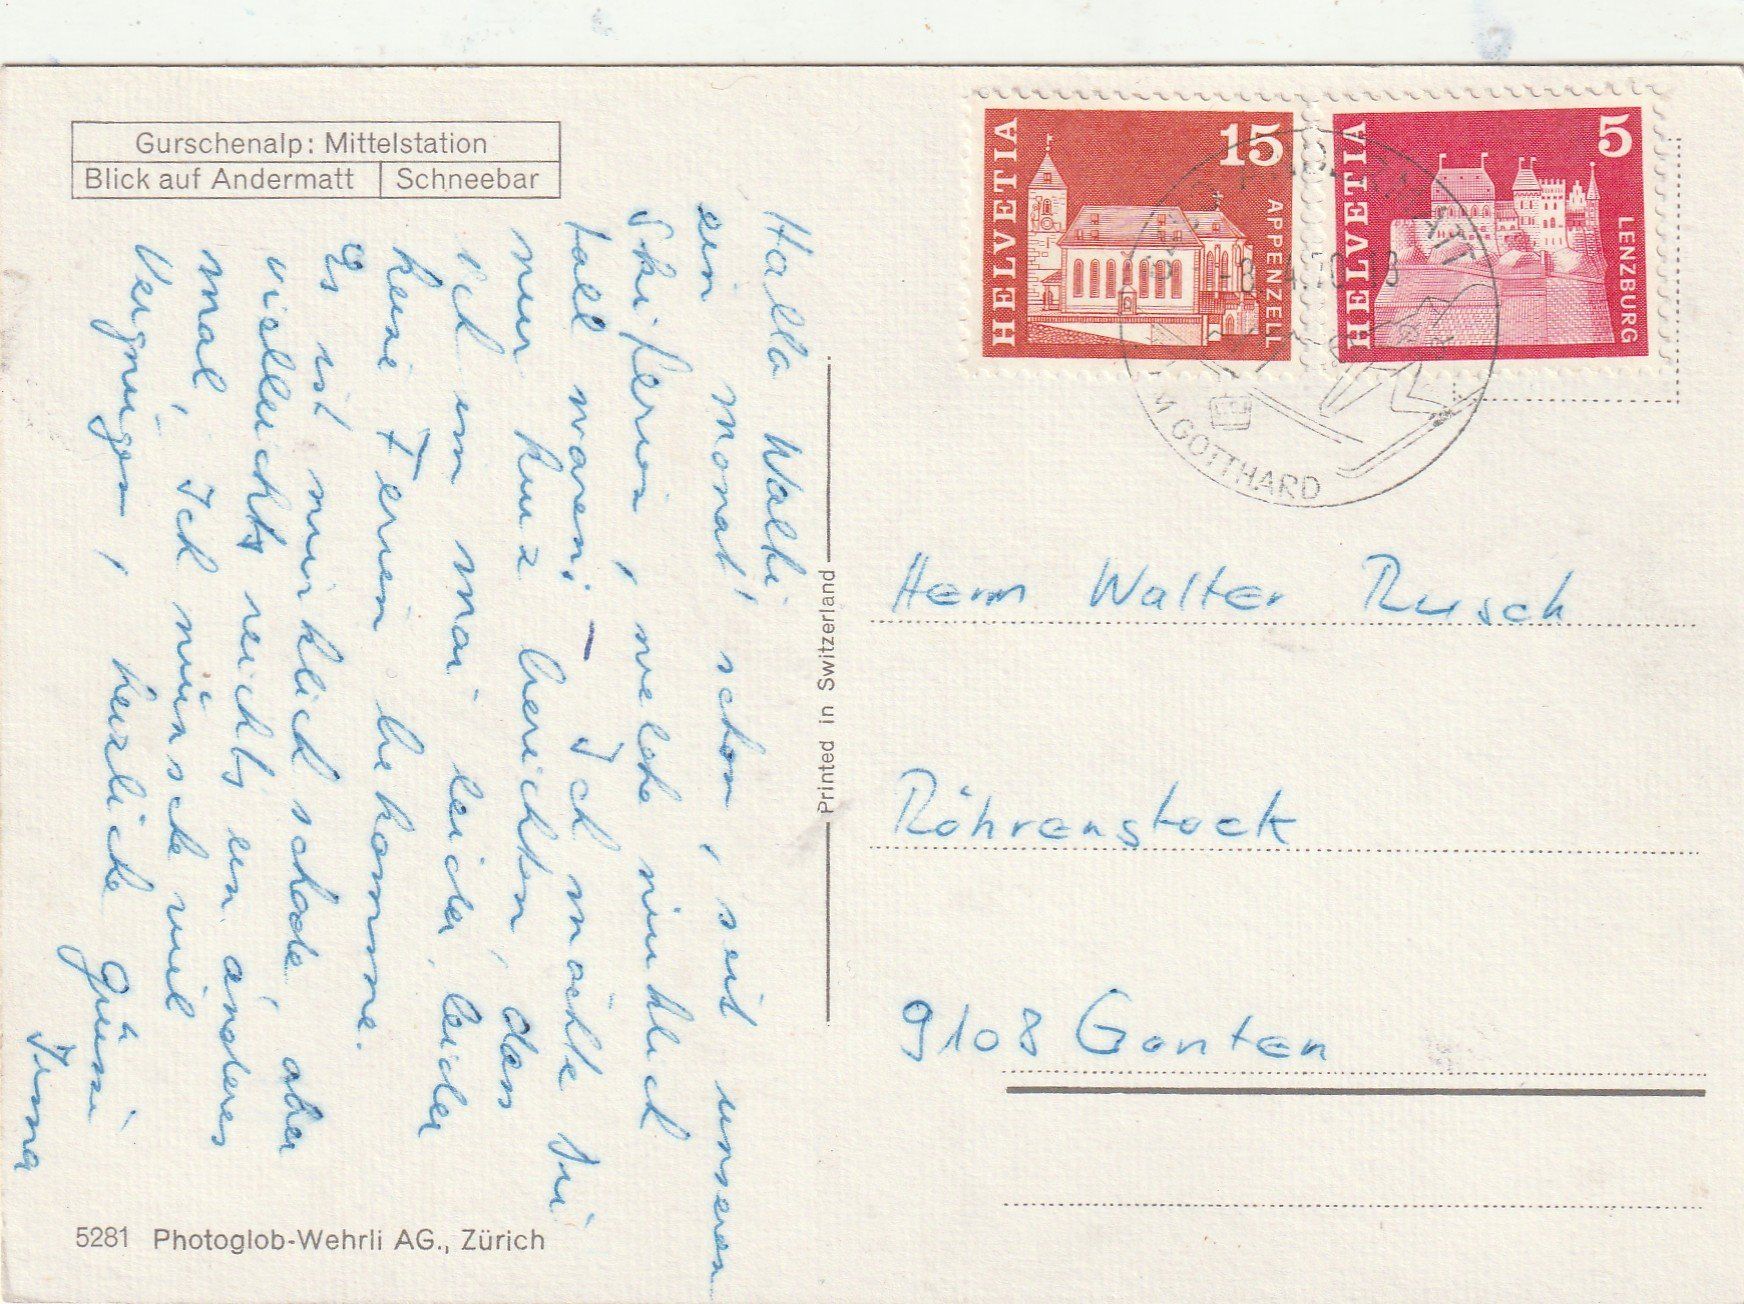 Gurschenalp: Mittelstation
Blick auf Andermatt
Schneebar
Hallo Walti,
ein Monat schon, seit unseren
Skiferien, welche wirklich
toll waren. – Ich möchte Dir
nur kurz berichten, dass
ich im Mai leider, leider
keine Ferien bekomme.
Es ist wirklich schade, aber
vielleicht reichts ein anderes
mal. Ich wünsche viel
Vergnügen, herzliche Grüsse
Irma
5281 Photoglob-Wehrli AG., Zürich
Printed in Switzerland
HELVETIA
15
APPENZELL
HELVETIA
5
LENZBURG
AM GOTTHARD
Herrn Walter Rusch
Röhrenstock
9108 Gonten